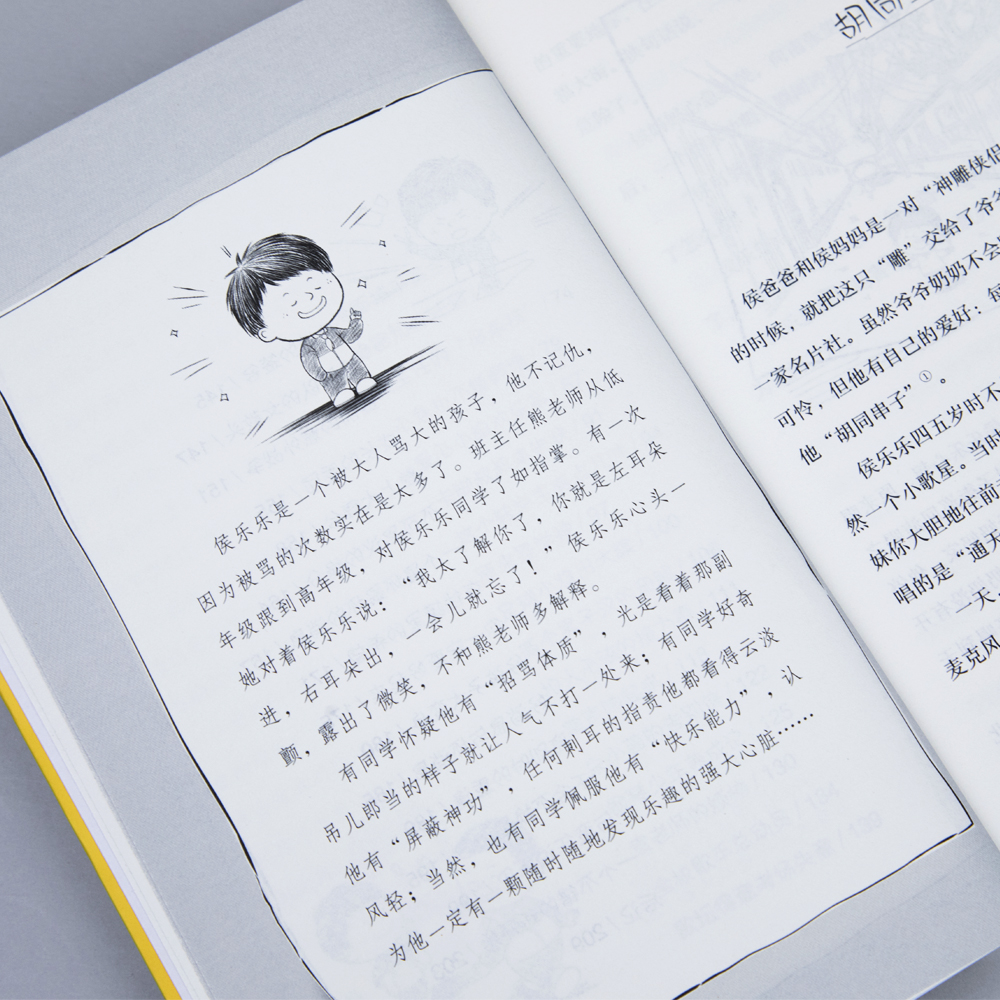 侯乐乐是一个被大人骂大的孩子，他不记仇，
因为被骂的次数实在是太多了。班主任熊老师从低
年级跟到高年级，对侯乐乐同学了如指掌。有一次
她对着侯乐乐说：“我太了解你了，你就是左耳朵
进，右耳朵出，一会儿就忘了！”侯乐乐心头一
颤，露出了微笑，不和熊老师多解释。
有同学怀疑他有“招骂体质”，光是看着那副
吊儿郎当的样子就让人气不打一处来；有同学好奇
他有“屏蔽神功”，任何刺耳的指责他都看得云淡
风轻；当然，也有同学佩服他有“快乐能力”，认
为他一定有一颗随时随地发现乐趣的强大心脏……
胡同
侯爸爸和侯妈妈是一对“神雕侠侣
的时候，就把这只“雕”交给了爷爷
一家名片社。虽然爷爷奶奶不会
可怜，但他有自己的爱好：每
他“胡同串子”①。
侯乐乐四五岁时不
然一个小歌星。当时
妹你大胆地往前
唱的是“通天
一天，
麦克风